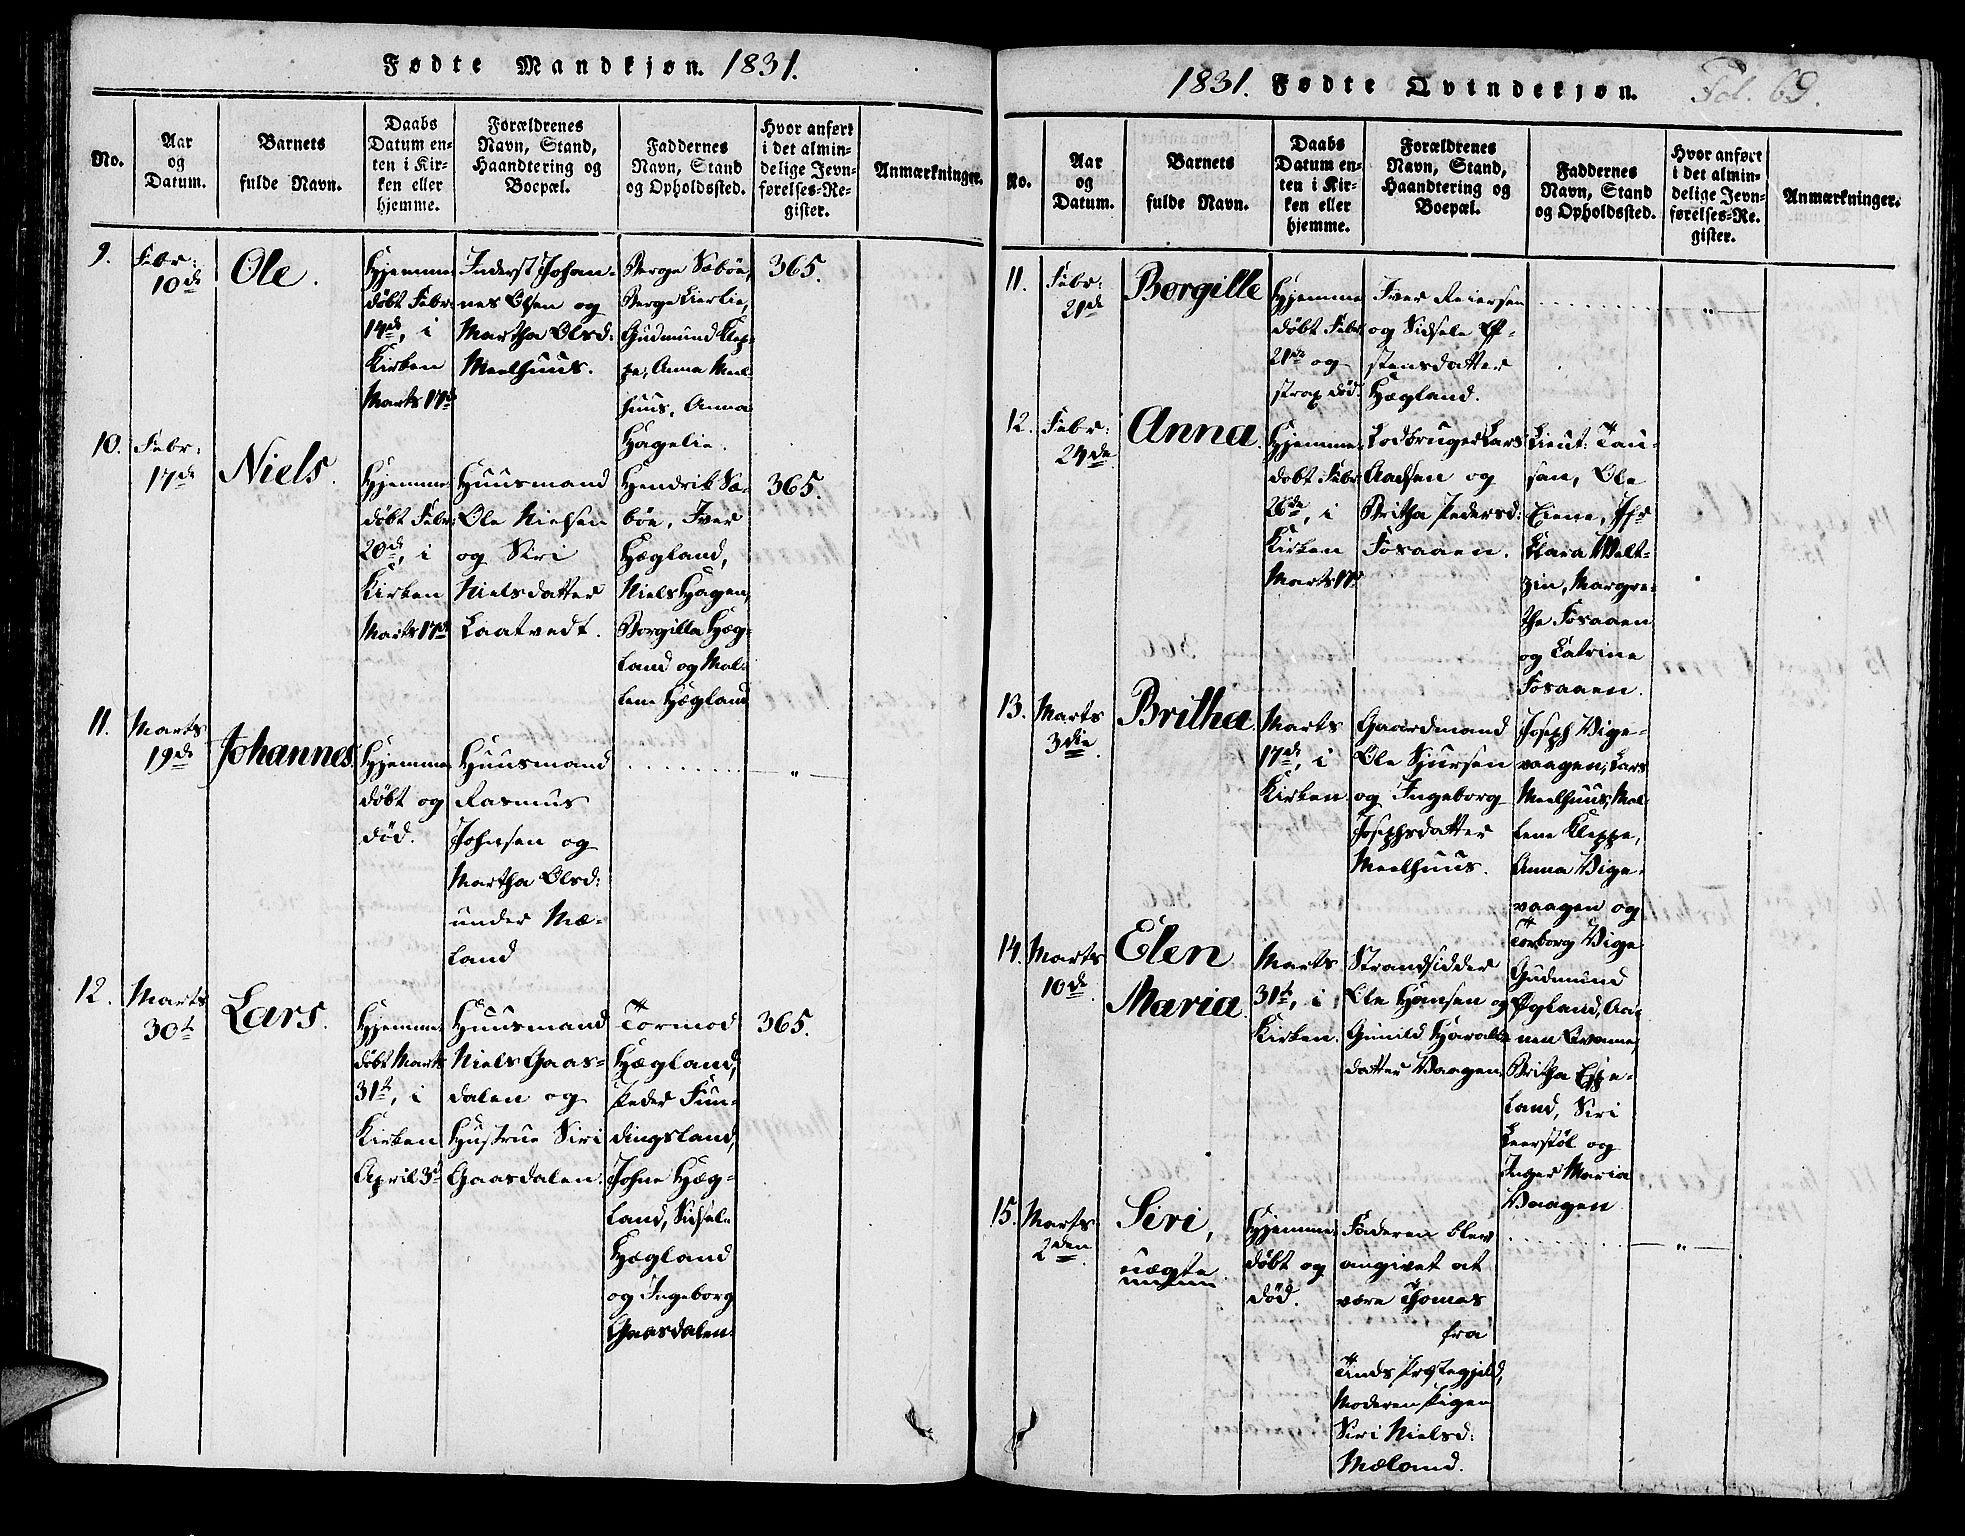 Fødte Mandkjøn. 1831.
No.
Aar
og
Datum.
Barnets
fulde Navn.
Daabs
Datum en-
ten i Kir-
ken eller
hjemme.
Forældrenes
Navn, Stand,
Haandtering og
Boepæl.
Faddernes
Navn, Stand
og Opholdssted.
Hvor anført
i det almin-
delige Jevn-
førelses-Re-
gister.
Anmærkninger.
9.
Febr:
10de
Ole.
Hjemme
døbt Febr:
14de, i
Kirken
Marts 17de
Inderst Johan-
nes Olsen og
Martha Olsd:
Meelhuus.
Berge Sæbøe,
Berge Lierlie,
Gudmund Klep-
pe, Anna Meel-
huus, Anna
Hagelie.
365.
10.
Febr:
17de
Niels.
Hjemme
døbt Febr:
20de, i
Kirken
Marts 17de
Huusmand
Ole Nielsen
og Siri
Nielsdatter
Laatvedt.
Hendrik Sæ-
bøe, Iver
Hægland,
Niels Hagen,
Borgilla Hæg-
land og Mal-
lene Hægland
365.
11.
Marts
19de
Johannes.
Hjemme
døbt og
død.
Huusmand
Rasmus
Johnsen og
Martha Olsd:
under Mæ-
land
"
12.
Marts
30te
Lars.
Hjemme
døbt Marts
31te, i
Kirken
April 3de
Huusmand
Niels Gaas-
dalen og
Hustrue Siri
Gaasdalen.
Tormod
Hægland,
Peder Fun-
dingsland,
Johne Hæg-
land, Sidsele
Hægland
og Ingeborg
Gaasdalen.
365.
1831. Fødte Qvindekjøn.
Fol. 69.
No.
Aar
og
Datum.
Barnets
fulde Navn.
Daabs
Datum en-
ten i Kir-
ken eller
hjemme.
Forældrenes
Navn, Stand,
Haandtering og
Boepæl.
Faddernes
Navn, Stand
og Opholdssted.
Hvor anført
i det almin-
delige Jevn-
førelses-Re-
gister.
Anmærkninger.
11.
Febr:
21de
Borgille
Hjemme
døbt Febr:
21de og
strax død.
Iver Reiersen
og Sidsele Ef-
stensdatter
Hægland.
"
12.
Febr:
24de
Anna.
Hjemme
døbt Febr:
26de, i
Kirken
Marts 17de
Lodbruger Lars
Aadsen og
Britha Pedersd:
Fosaaen.
Lieut: Tau-
san, Ole
Eiene, Jfr
Clara Welt-
zin, Margre-
the Fosaaen
og Catrine
Fosaaen.
13.
Marts
3die
Britha.
Marts
17de, i
Kirken.
Gaardmand
Ole Sjursen
og Ingeborg
Josephsdatter
Meelhuus.
Joseph Vige-
vaagen, Lars
Meelhuus, Mal-
lene Kleppe,
Anna Vige-
vaagen og
Torborg Vige
14.
Marts
10de
Elen
Maria.
Marts
31te, i
Kirken.
Strandsidder
Ole Hansen og
Gunild Haralds-
datter Vaagen.
Gudmund
Øgland, Aa-
nen Qvame,
Britha Espe-
land, Siri
Leerstøl og
Inger Maria
Vaagen
15.
Marts
2den
Siri,
uægte.
Hjemme-
døbt og
død.
Faderen blev
angivet at
være Thomas
fra
Tinds Præstegjeld,
Moderen Pigen
Siri Nielsd:
Mæland.
"